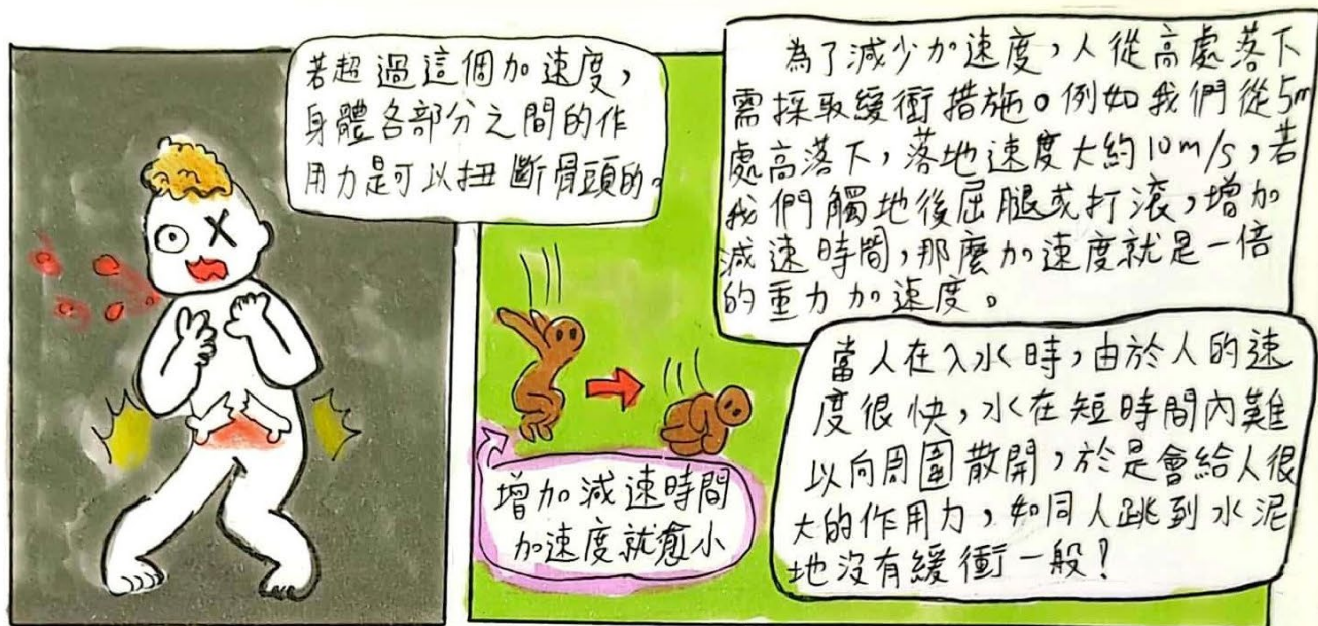 若超過這個加速度，
身體各部分之間的作
用力是可以扭斷骨頭的。
為了減少加速度，人從高處落下
需採取緩衝措施。例如我們從5m
處高落下，落地速度大約10m/s，若
我們觸地後屈腿或打滾，增加
減速時間，那麼加速度就是一倍
的重力加速度。
增加減速時間
加速度就愈小
當人在入水時，由於人的速
度很快，水在短時間內難
以向周圍散開，於是會給人很
大的作用力，如同人跳到水泥
地沒有緩衝一般！